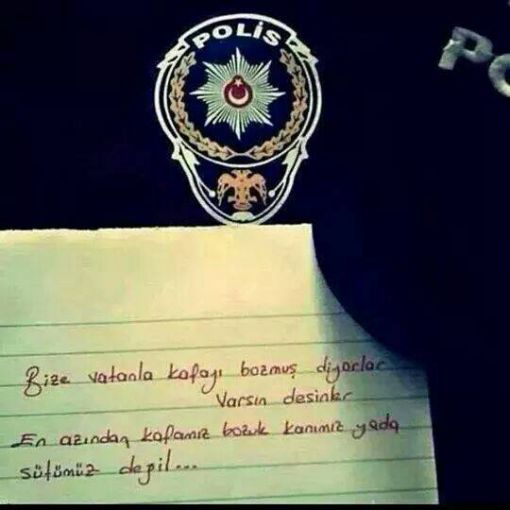 POLİS
PO
Bize vatanla kafayı bozmuş diyorlar
Varsın desinler
En azından kafamız bozuk kanımız yada
sütümüz depil...